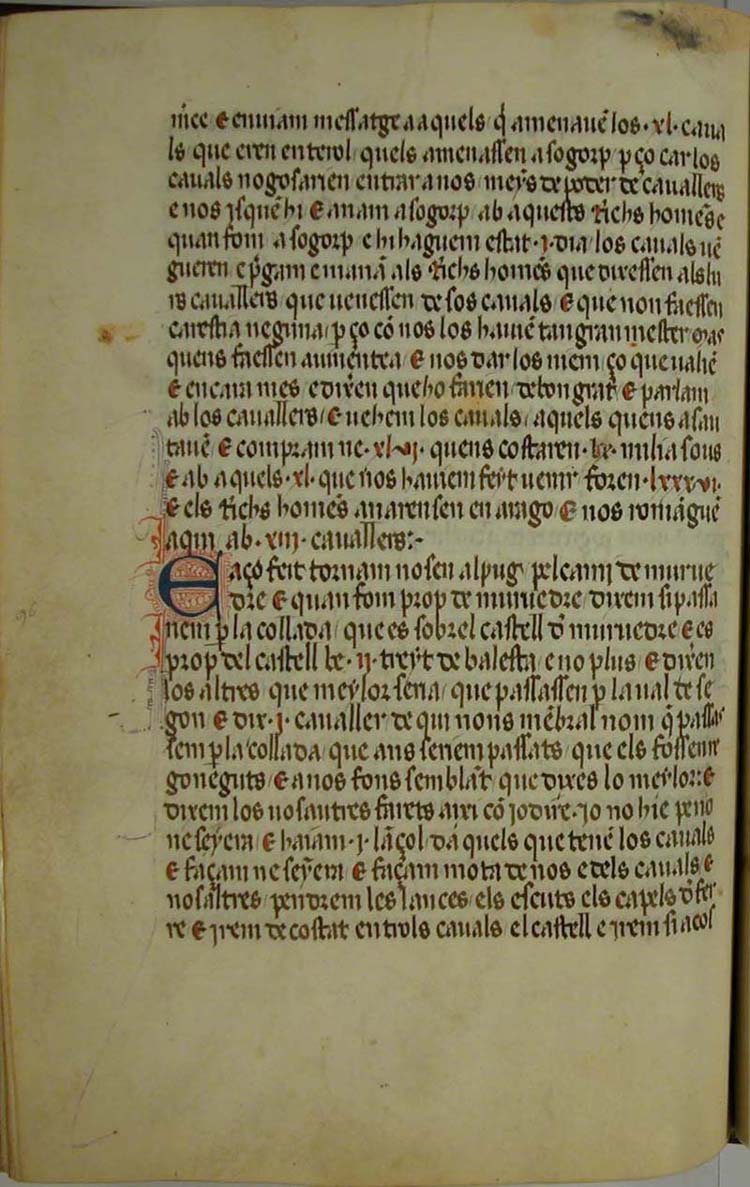 mēce e enuiam messatge a aquels q̄ amenauē los ·xl· caua
ls que eren en terol quels amenassen a sogorp p ço car los
cauals no gosarien entrar a nos meỹs de poder de cauallers
e nos isquē hi e anam a sogorp ab aquests richs homēs e
quan fom a sogorp e hi haguem estat ·j· dia los cauals uē
gueren e p̄gam e manā als richs homēs que diessen als lu
rs cauallers que uenessen de sos cauals e que non faessen
carestia neguna p ço cō nos los hauiē tan gran mester mas
quens faessen auinentea e nos dar los niem ço que ualiē
e encara mes e dixen que ho farien de bon grat e parlam
ab los cauallers e uehem los cauals aquels quens asau
tauē e compram ne ·xlvj· quens costaren ·lx· milia sous
e ab aquels ·xl· que nos hauiem feyt uenir foren ·lxxxvi·
e els richs homēs anaren sen en arago e nos romāguē
aqui ab ·xiij· cauallers:-
E aço feit tornam nosen al pug pel cami de murue
dre e quan fom prop de muruedre dixem si passa
riem p la collada que es sobrel castell d̄ muruedre e es
prop del castell be ·ij· treyt de balesta e no plus e dixen
los altres que meylor seria que passassen p la ual de se
gon e dix ·j· caualler de qui nons mēbral nom q̄ passas
sem p la collada que ans seriem passats que els fossem
goneguts e a nos fons semblāt que dixes lo meylor: e
dixem los nosautres farets axi cō jo dire jo no hic peno
ne seyera e haiam ·j· lāçol daquels que tenē los cauals
e façam ne seỹera e façam mota de nos e dels cauals e
nosaltres pendrem les lances els escuts els capels d̄ fer
re e jrem de costat entrols cauals el castell e jrem si acos